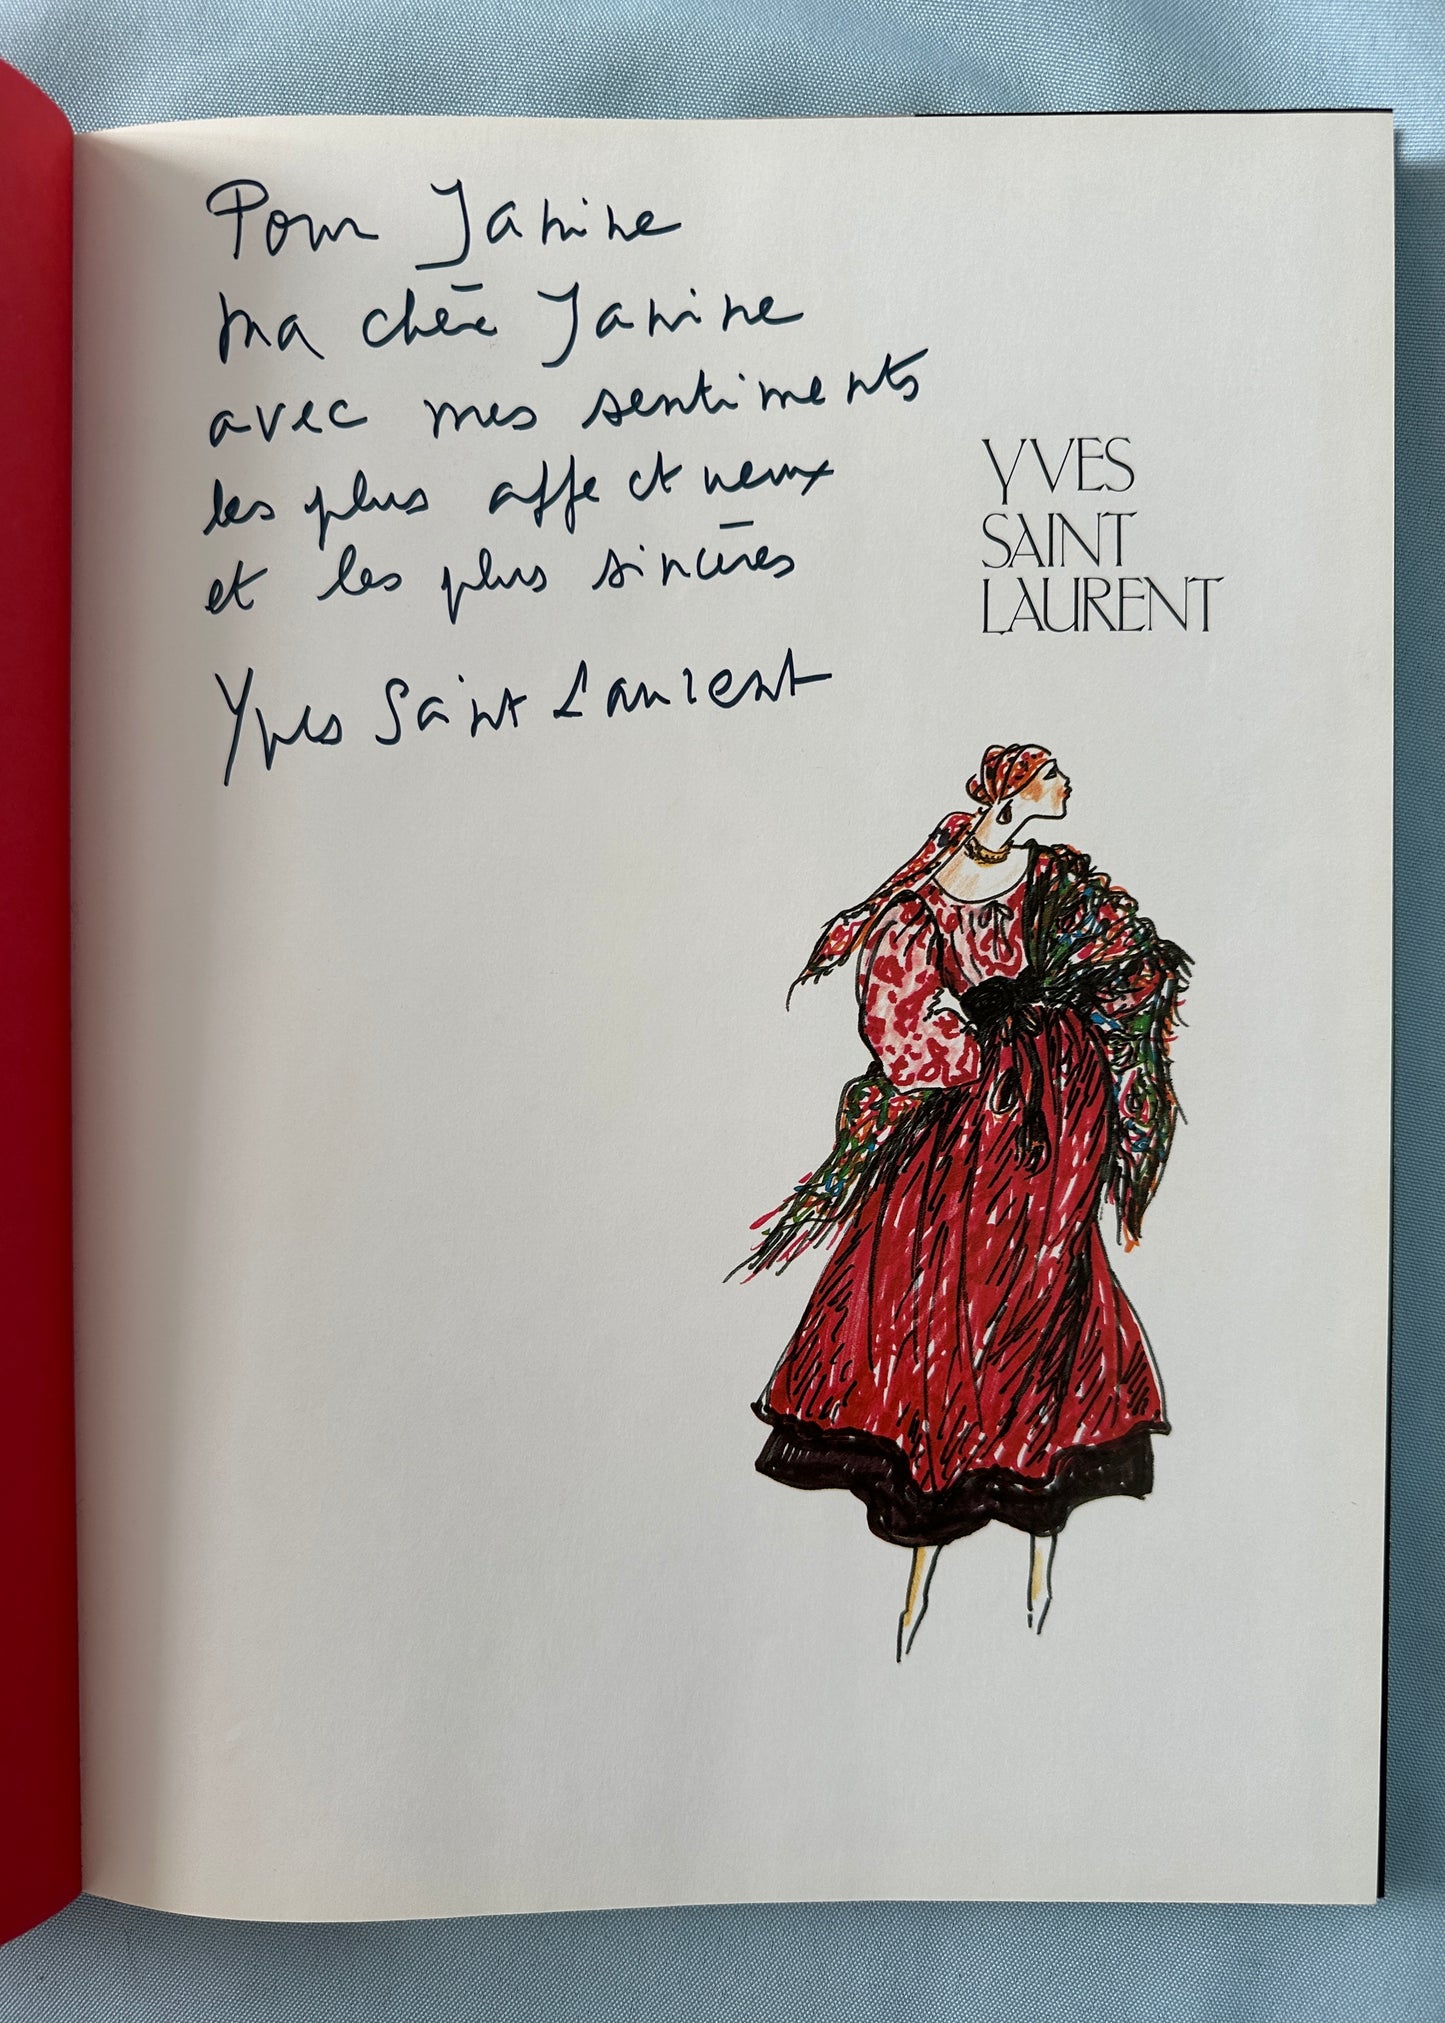 Pour Janine
ma chère Janine
avec mes sentiments
les plus affectueux
et les plus sincères
Yves Saint Laurent
YVES
SAINT
LAURENT